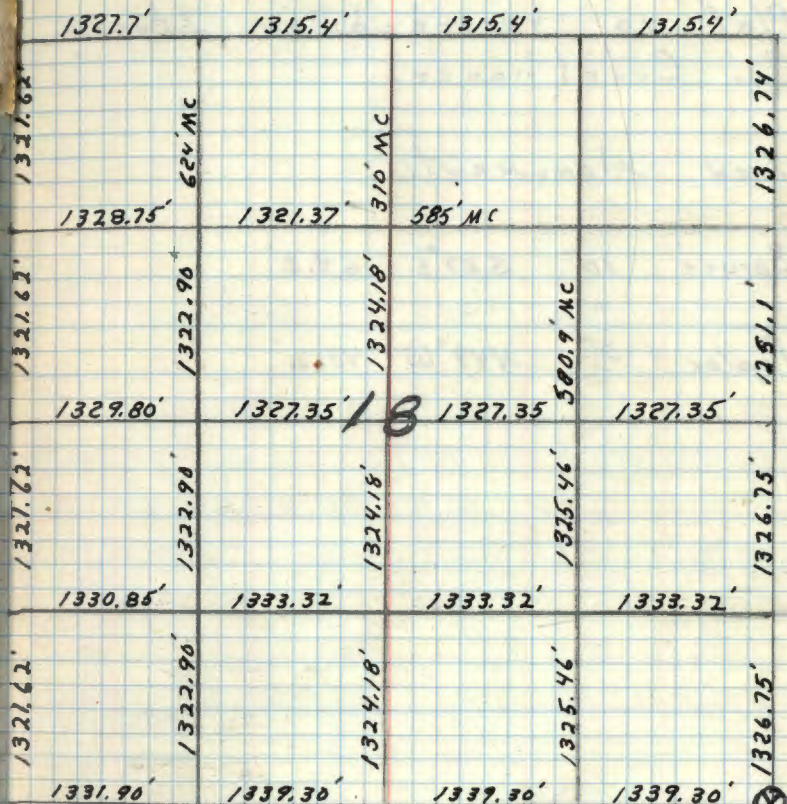 1327.7' 1315.4' 1315.4' 1315.4'
1321.62' 624' MC 310' MC 1326.74'
1328.75' 1321.37' 585' MC
1321.62' 1322.90 1324.18' 580.9' MC 1251.1'
1329.80' 1327.35' 18 1327.35 1327.35'
1327.62' 1322.90' 1324.18' 1325.46' 1326.75'
1330.85' 1333.32' 1333.32' 1333.32'
1321.62' 1322.90' 1324.18' 1325.46' 1326.75'
1331.90' 1339.30' 1339.30' 1339.30'